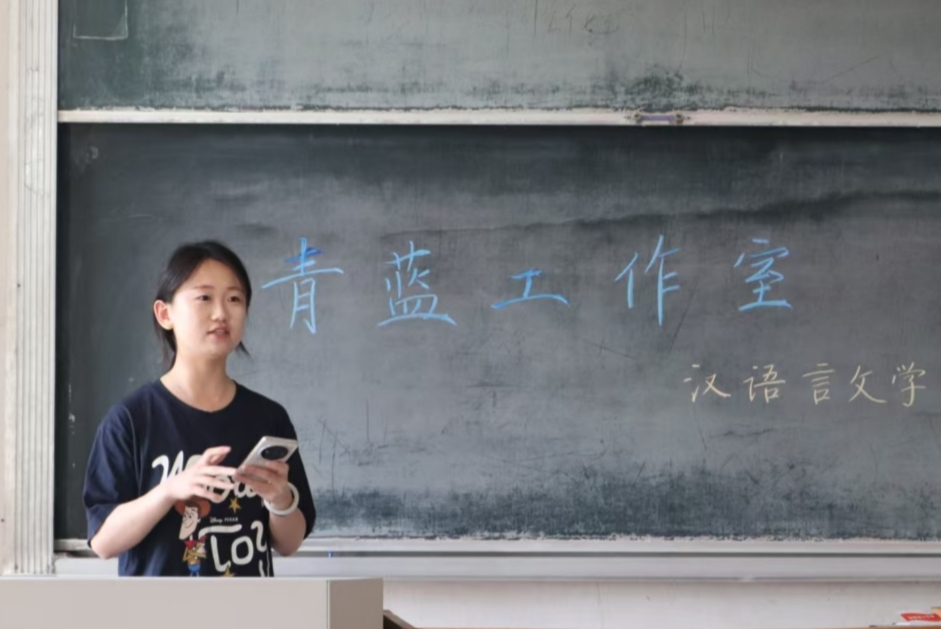 青蓝工作室
汉语言文学
Disney PIXAR